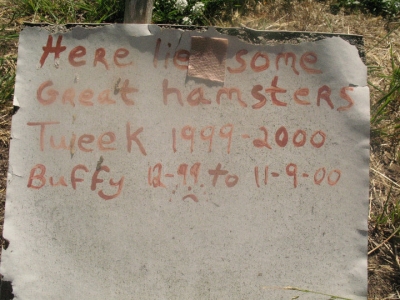 Here lie some
Great hamsters
Tweek 1999-2000
Buffy 12-99 to 11-9-00